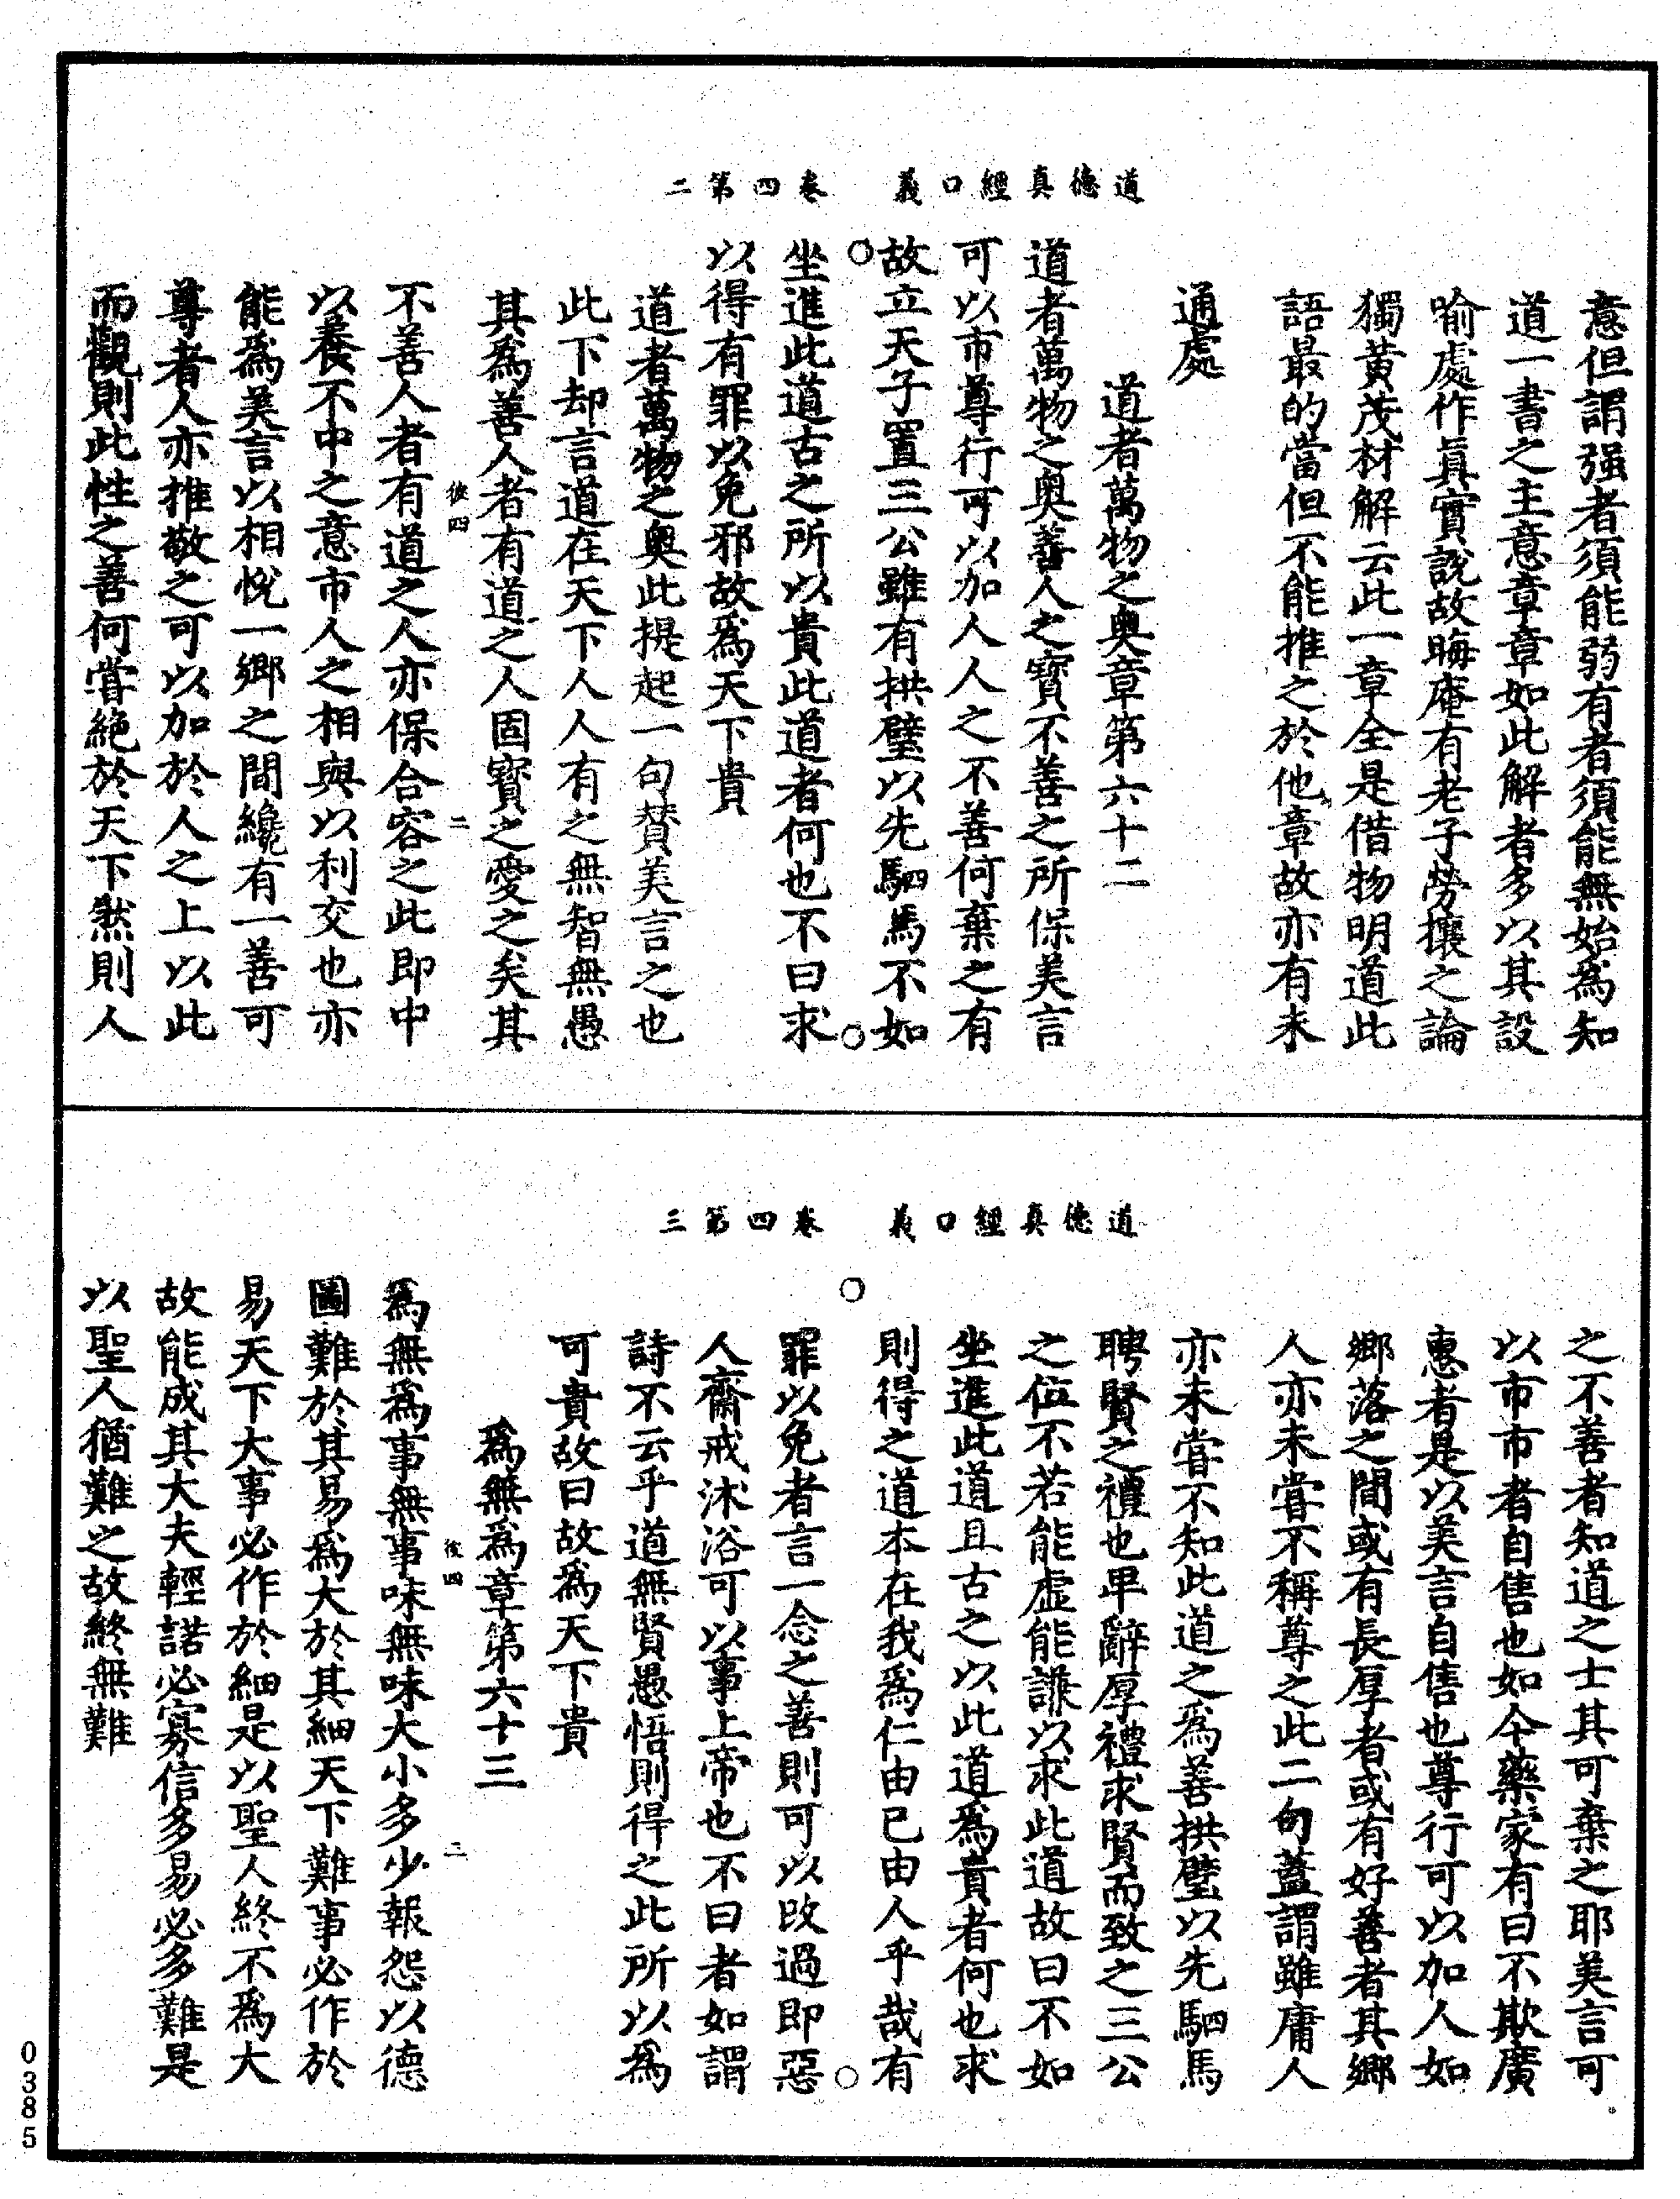 道德真經口義　卷四第二
意但謂强者須能弱有者須能無始為知
道一書之主意章章如此解者多以其設
喻處作真實說故晦庵有老子勞攘之論
獨黃茂材解云此一章全是借物明道此
語最的當但不能推之於他章故亦有未
通處
道者萬物之奧章第六十二
道者萬物之奧善人之寶不善之所保美言
可以市尊行可以加人人之不善何棄之有
故立天子置三公雖有拱璧以先駟馬不如
坐進此道古之所以貴此道者何也不曰求
以得有罪以免邪故為天下貴
道者萬物之奧此提起一句贊美言之也
此下却言道在天下人人有之無智無愚
其為善人者有道之人固寶之愛之矣其
彼四　二
不善人者有道之人亦保合容之此即中
以養不中之意市人之相與以利交也亦
能為美言以相悅一鄉之間纔有一善可
尊者人亦推敬之可以加於人之上以此
而觀則此性之善何嘗絕於天下然則人
道德真經口義　卷四第三
之不善者知道之士其可棄之耶美言可
以市市者自售也如今藥家有曰不欺廣
惠者是以美言自售也尊行可以加人如
鄉落之間或有長厚者或有好善者其鄉
人亦未嘗不稱尊之此二句蓋謂雖庸人
亦未嘗不知此道之為善拱璧以先駟馬
聘賢之禮也卑辭厚禮求賢而致之三公
之位不若能虛能謙以求此道故曰不如
坐進此道且古之以此道為貴者何也求
則得之道本在我為仁由已由人乎哉有
罪以免者言一念之善則可以改過即惡
人齋戒沐浴可以事上帝也不曰者如謂
詩不云乎道無賢愚悟則得之此所以為
可貴故曰故為天下貴
為無為章第六十三
彼四　三
為無為事無事味無味大小多少報怨以德
圖難於其易為大於其細天下難事必作於
易天下大事必作於細是以聖人終不為大
故能成其大夫輕諾必寡信多易必多難是
以聖人猶難之故終無難
0385